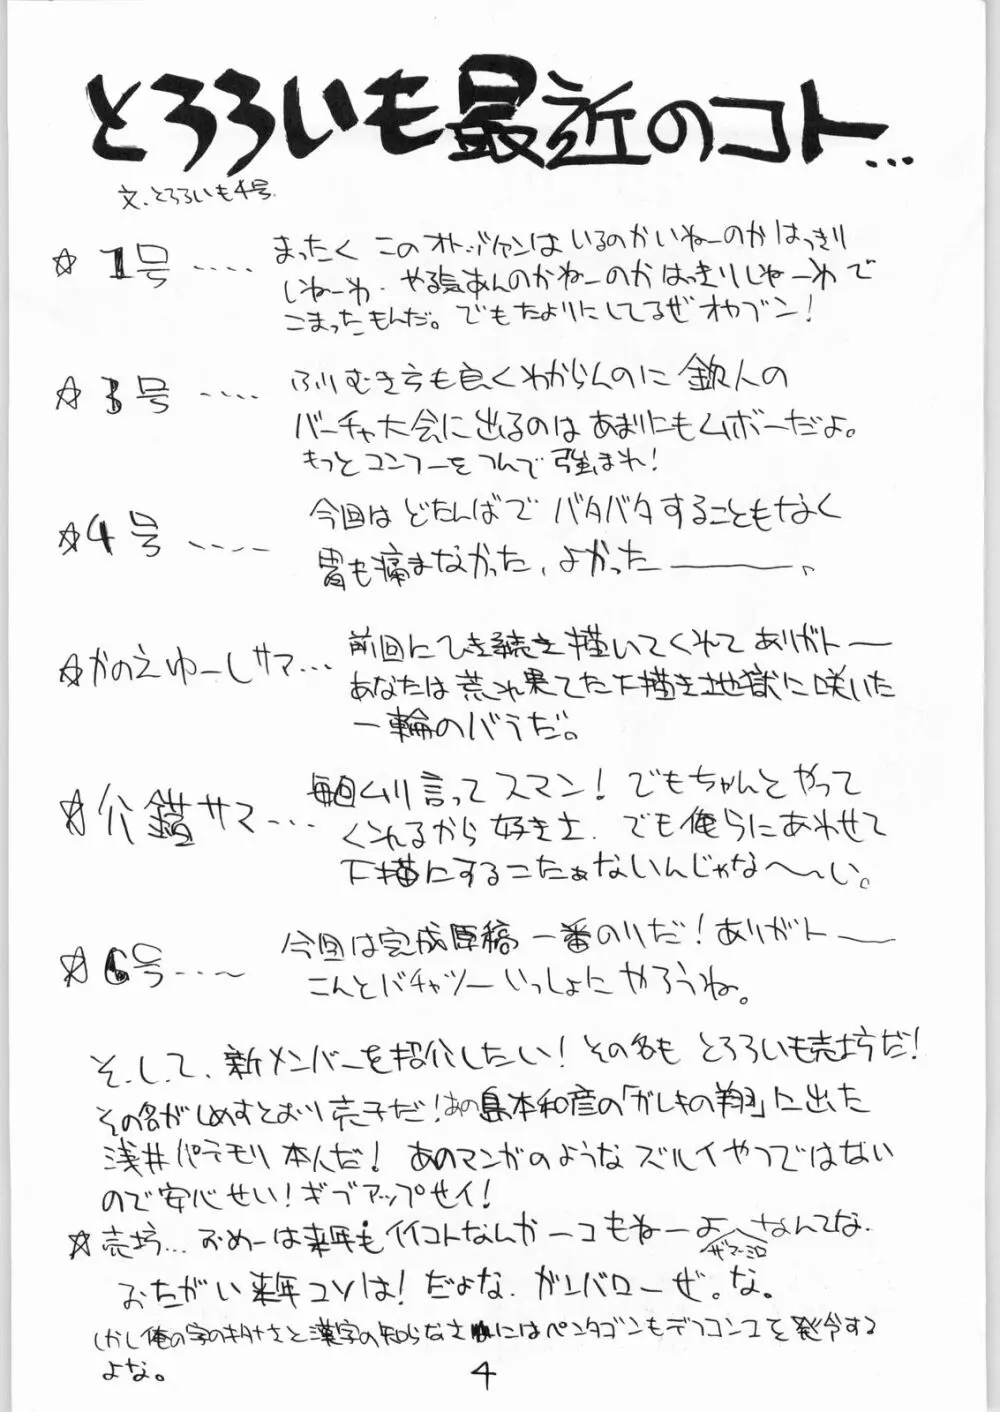 とろろいも最近のコト...
文.とろろいも4号.
☆1号.....まったく このオトッツァンは いるのかいねーのか はっきり
しねーわ.やる気あんのかねーのか はっきりしねーわで
こまったもんだ。でもたよりにしてるぜオヤブン!
☆3号.....ふりむき方も良くわからんのに 鉄人の
バーチャ大会に出るのは あまりにもムボーだよ。
もっとコンフーをつんで強まれ!
☆4号.....今回は どたんばで バタバタすることもなく
胃も痛まなかった、よかったーーー
☆かのえゆーしサマ...前回にひき続き描いてくれて ありがトー
あなたは 荒れ果てた下描き地獄に咲いた
一輪のバラだ。
☆介錯サマ...毎回ムリ言って スマン! でもちゃんと やって
くれるから 好きさ. でも俺らにあわせて
下描にするこたぁないんじゃな〜〜い。
☆6号....今回は完成原稿 一番のりだ!ありがトー
こんどバチャツーいっしょに やろうね。
そ.し.て、新メンバーを紹介したい!その名も とろろいも売坊だ!
その名がしめすとおり売子だ!あの島本和彦の「ガレキの翔」に出た
浅井パテモリ本人だ! あのマンガのようなズルイやつではない
ので安心せい!ギブアップせイ!
☆売坊...おめーは来年もイイコトなんか一コもねーよ なんてな.
ザマーミロ
おたがい来年コソは!だよな.ガンバローぜ。な。
しかし俺の字のキタナさと漢字の知らなさにはペンタゴンもデフコン2を発令する
よな。
4